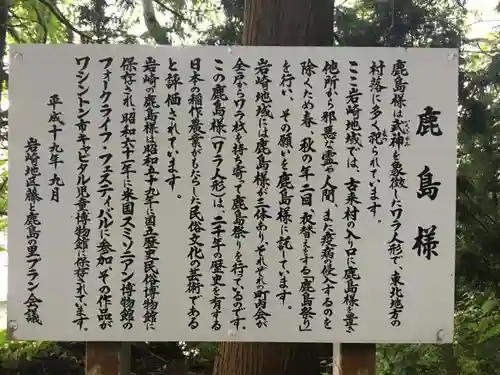 鹿島様
鹿島様は武神を象徴したワラ人形で、東北地方の
村落に多く祀られています。
ここ岩崎地域では、古来村の入り口に鹿島様を置く
他所から邪悪な霊や人間、また疫病の侵入するのを
除くため春、秋の年二回「衣替えをする「鹿島祭り」
を行い、その願いを鹿島様に託しています。
岩崎地域には鹿島様が三体あり、それぞれの町内会が
全戸からワラ核を持ち寄って鹿島祭りを行っているのです。
この鹿島様(ワラ人形)は、二千年の歴史を有する
日本の稲作農業がもたらした民俗文化の芸術である
と評価されています。
岩崎の鹿島様は昭和五十九年に国立歴史民俗博物館に
保存され、昭和六十一年に米国スミソニアン博物館の
フォークライフ・フェスティバルに参加、その作品が
ワシントン市キャピタル児童博物館に保存されています。
平成十九年九月
岩崎地区藤と鹿島の里プラン会議